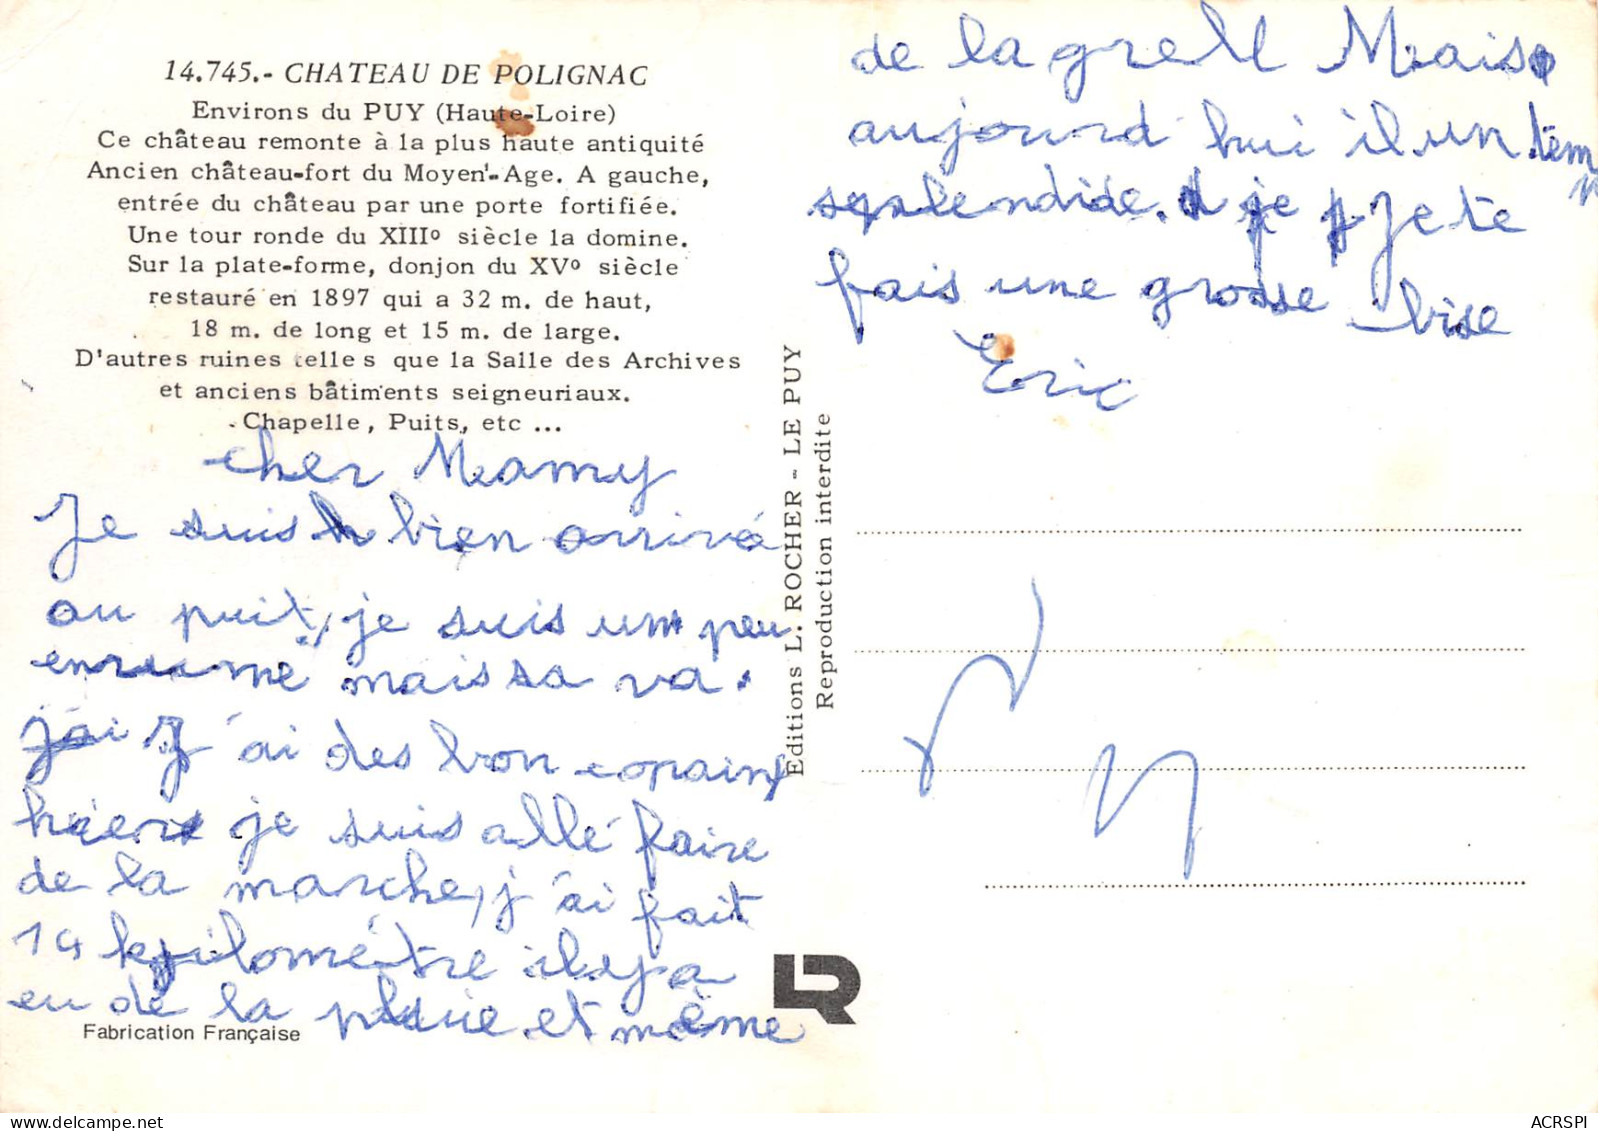 14.745.- CHATEAU DE POLIGNAC
Environs du PUY (Haute-Loire)
Ce château remonte à la plus haute antiquité
Ancien château-fort du Moyen-Age. A gauche,
entrée du château par une porte fortifiée.
Une tour ronde du XIIIº siècle la domine.
Sur la plate-forme, donjon du XVº siècle
restauré en 1897 qui a 32 m. de haut,
18 m. de long et 15 m. de large.
D'autres ruines telles que la Salle des Archives
et anciens bâtiments seigneuriaux.
Chapelle, Puits, etc ...
cher Mamy
Je suis bien arrivé
au puit, je suis un peu
enrumé mais sa va.
j'ai J'ai des bon copains
hier je suis allé faire
de la marche, j'ai fait
14 kilométre il y a
eu de la pluie et même
Fabrication Française
Editions L. ROCHER - LE PUY
Reproduction interdite
de la grell Mais
aujourd hui il un tem
splendide. je Je te
fais une grosse bise
Eric
LR
ACRSPI